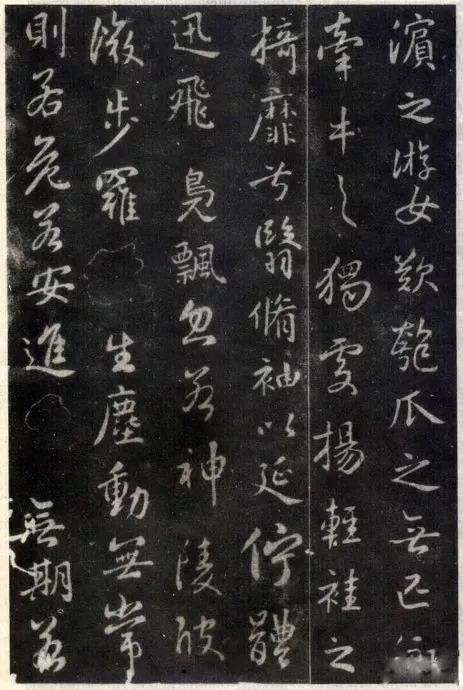 濱之游女歎匏瓜之無匹詠
牽牛之獨處揚輕袿之
掎靡兮翳脩袖以延佇體
迅飛鳧飄忽若神陵波
微步羅生塵動無常
則若危若安進無期若